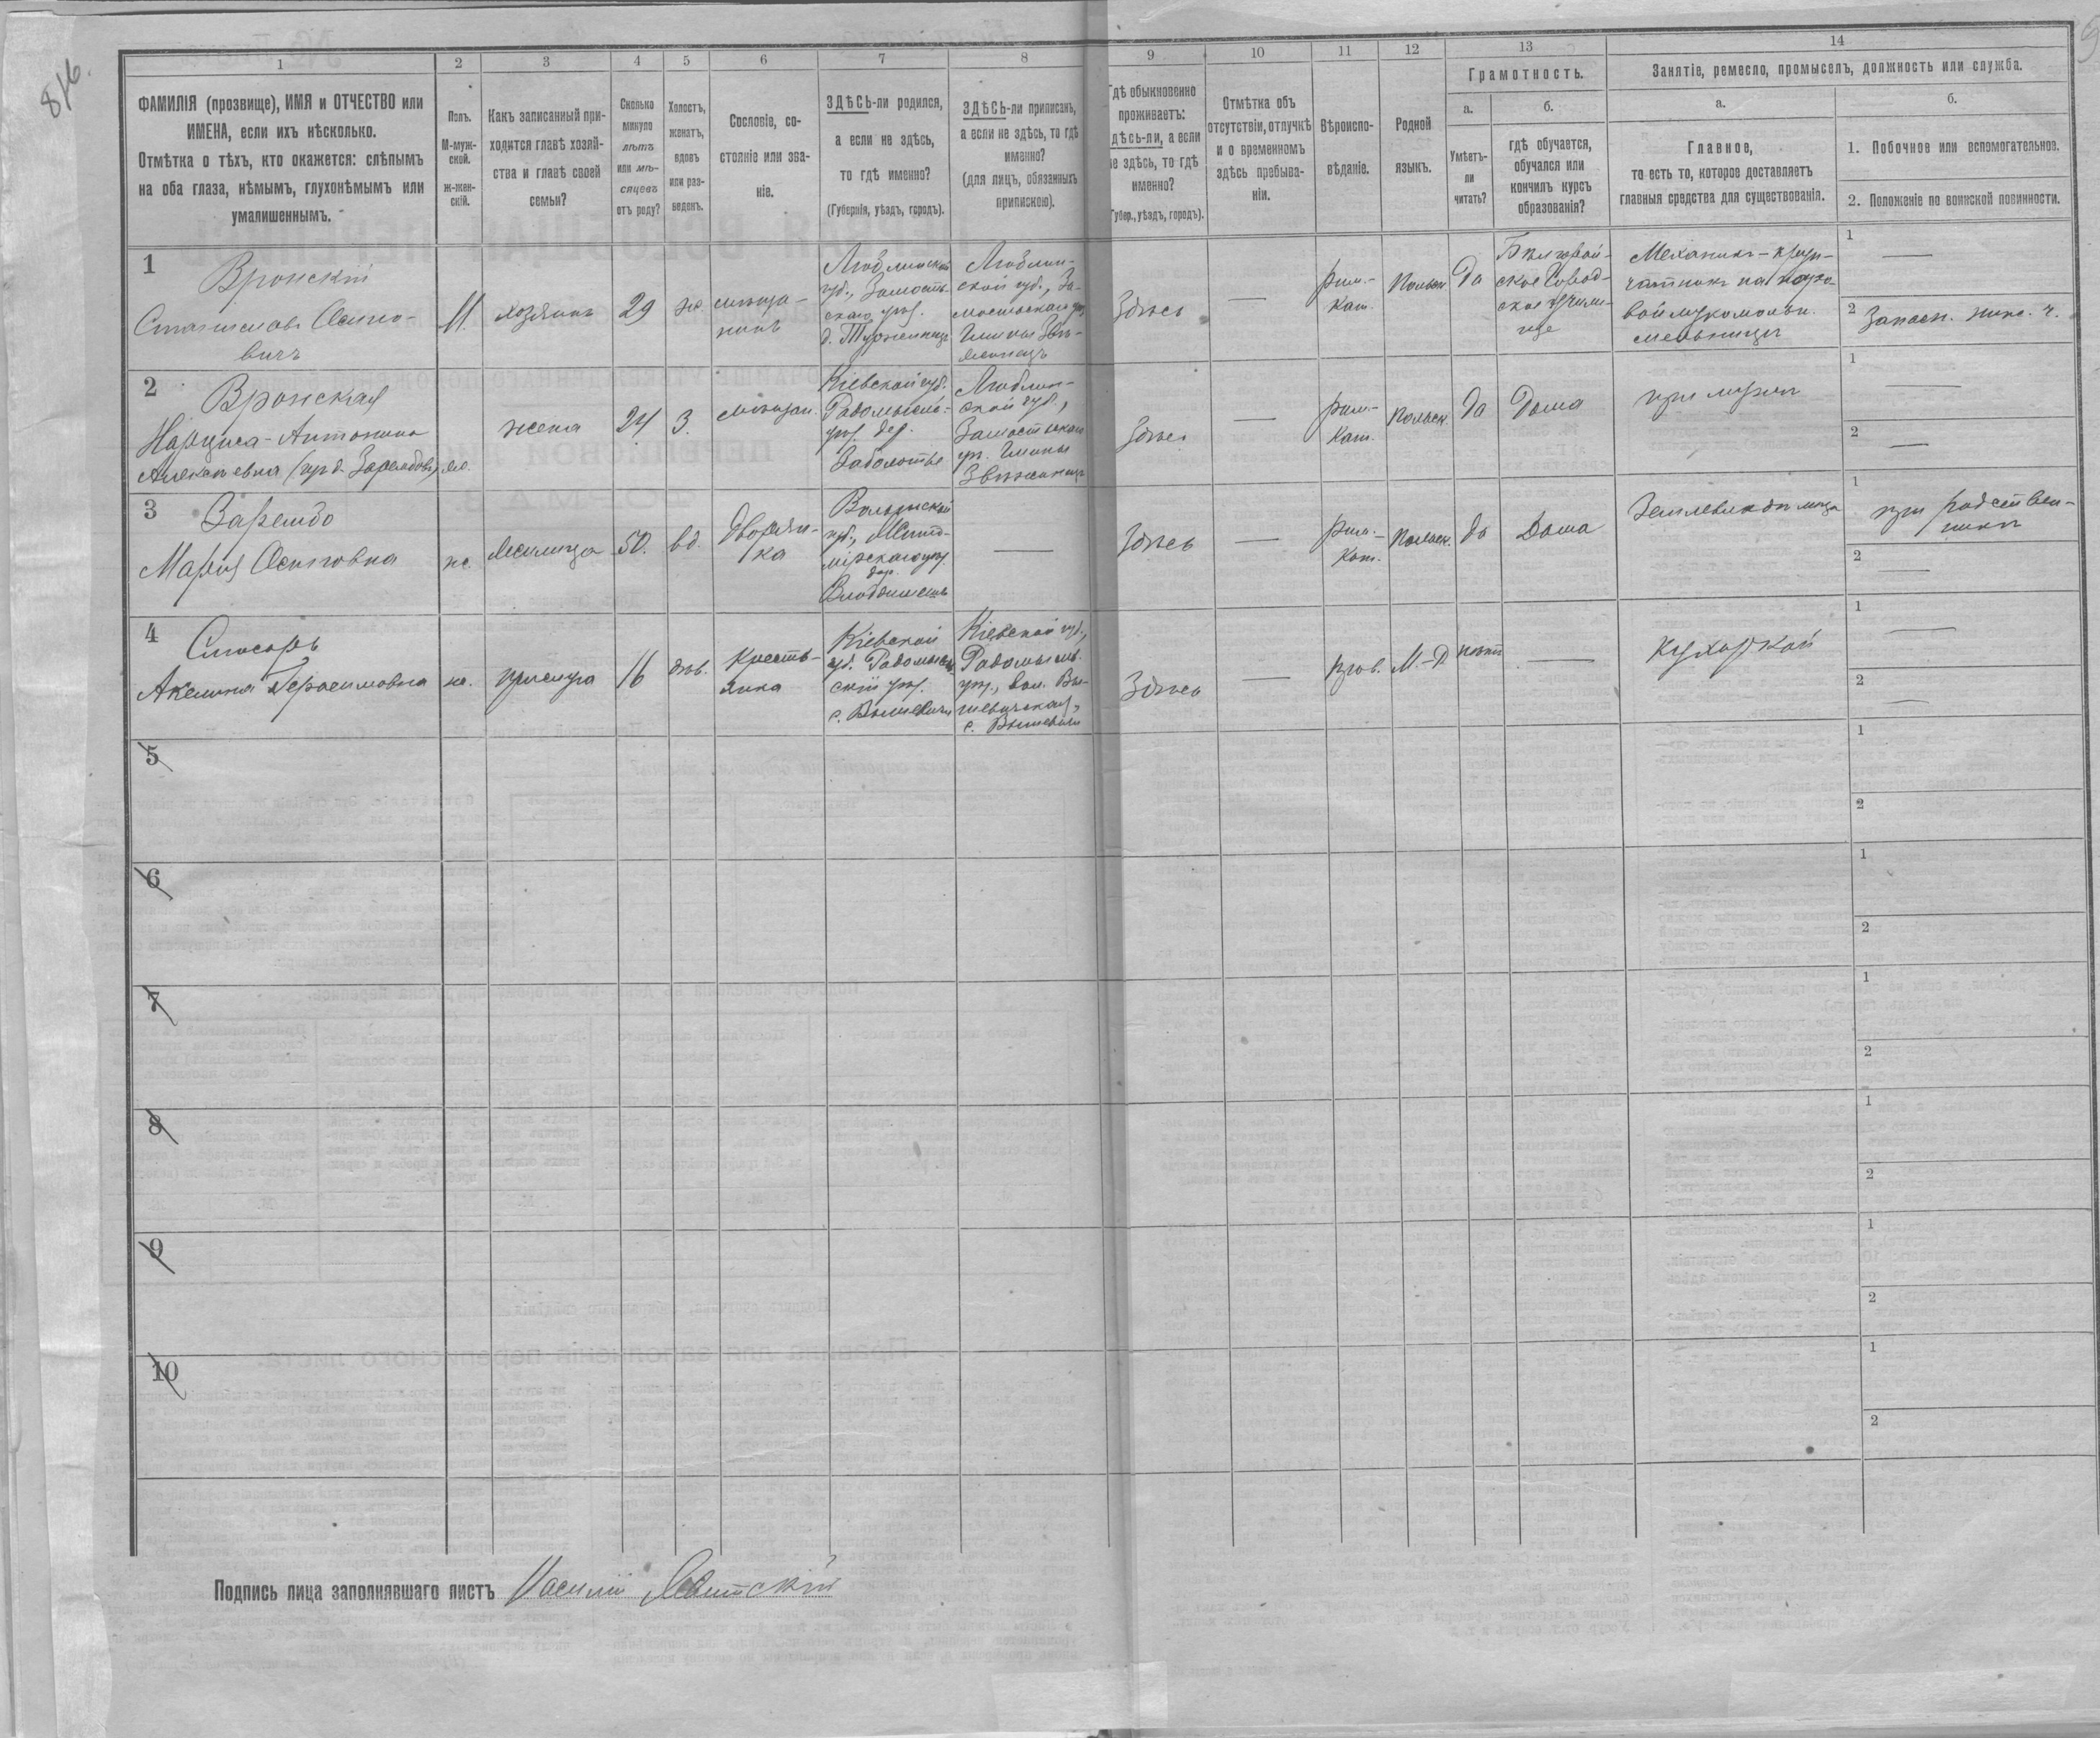 8/6.
1
2
3
4
5
6
7
8
9
10
11
12
13
14
ФАМИЛІЯ (прозвище), ИМЯ и ОТЧЕСТВО или
ИМЕНА, если ихъ нѣсколько.
Отмѣтка о тѣхъ, кто окажется: слѣпымъ
на оба глаза, нѣмымъ, глухонѣмымъ или
умалишеннымъ.
Полъ.
М-муж-
ской.
Ж-жен-
скій.
Какъ записанный при-
ходится главѣ хозяй-
ства и главѣ своей
семьи?
Сколько
минуло
лѣтъ
или мѣ-
сяцевъ
отъ роду?
Холостъ,
женатъ,
вдовъ
или раз-
веденъ.
Сословіе, со-
стояніе или зва-
ніе.
ЗДѢСЬ-ли родился,
а если не здѣсь,
то гдѣ именно?
(Губернія, уѣздъ, городъ).
ЗДѢСЬ-ли приписанъ,
а если не здѣсь, то гдѣ
именно?
(для лицъ, обязанныхъ
припискою).
Гдѣ обыкновенно
проживаетъ:
здѣсь-ли, а если
не здѣсь, то гдѣ
именно?
(Губер., уѣздъ, городъ).
Отмѣтка объ
отсутствіи, отлучкѣ
и о временномъ
здѣсь пребыва-
ніи.
Вѣроиспо-
вѣданіе.
Родной
языкъ.
Грамотность.
а.
Умѣетъ-
ли
читать?
б.
гдѣ обучается,
обучался или
кончилъ курсъ
образованія?
Занятіе, ремесло, промыселъ, должность или служба.
а.
Главное,
то есть то, которое доставляетъ
главныя средства для существованія.
б.
1. Побочное или вспомогательное.
2. Положеніе по воинской повинности.
1
Вронскій
Станиславъ Осипо-
вичъ
М.
хозяинъ
29
ж.
мѣща-
нинъ
Люблинской
губ., Замость-
скаго уѣз.
Люблин-
ской губ., За-
мостьскаго у.,
Гмины Звѣ-
Здѣсь
—
Рим.-
Кат.
Польск
да
ское Город-
ское Учили-
ще
Механикъ-круп-
чатникъ на паро-
вой мукомольн.
мельницѣ
1
—
2 Запасн. ниж. ч.
2
Вронская
Антонина
ж.
жена
24
З.
мѣщан.
Кіевской губ.
Радомысль-
уѣз. дер.
Заболотье
Люблин-
ской губ.,
Замостьскаго
у. Гмины
Здѣсь
—
рим.-
Кат.
Польск.
да
Дома
при мужѣ
1
—
2
—
3
Зарембо
Марія Осиповна
ж.
50.
вд.
Дворян-
ка
Волынской
губ., Жито-
мірскаго уѣз.
дер.
—
Здѣсь
—
рим.-
Кат.
Польск.
да
Дома
Землевладѣлица
1
при родствен-
никѣ
2
—
4
Слюсарь
Акелина Герасимовна
ж.
прислуга
16
дѣв.
Кресть-
янка
Кіевской
губ. Радомысль-
скій уѣз.
с. Вышевичи
Кіевской губ.,
Радомысль.
уѣз., вол. Вы-
шевичская,
с. Вышевичи
Здѣсь
—
прав.
М.-Р.
нѣтъ
—
Кухаркой
1
—
2
—
5
1
2
6
1
2
7
1
2
8
1
2
9
1
2
10
1
2
Подпись лица заполнявшаго листъ